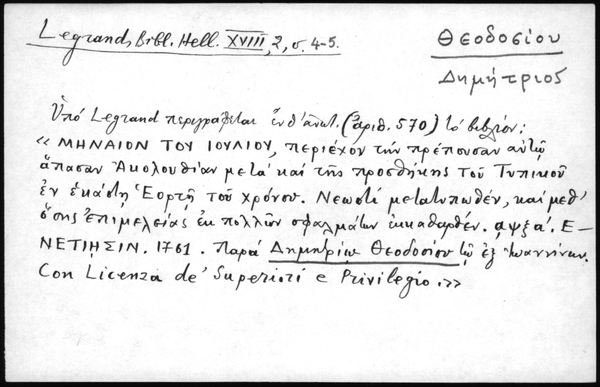 Legrand, Bibl. Hell. XVIII, 2, σ. 4-5.
Θεοδοσίου
Δημήτριος
Ὑπό Legrand περιγράφεται ἔνθ' ἀνωτ. (ἀριθ. 570) τό βιβλίον:
« ΜΗΝΑΙΟΝ ΤΟΥ ΙΟΥΛΙΟΥ, περιέχον τήν πρέπουσαν αὐτῷ
ἅπασαν Ἀκολουθίαν μετά καί τῆς προσθήκης τοῦ Τυπικοῦ
ἐν ἑκάστῃ Ἑορτῇ τοῦ χρόνου. Νεωστί μετατυπωθέν, καί μεθ'
ὅσης ἐπιμελείας ἐκ πολλῶν σφαλμάτων ἐκκαθαρθέν. αψξα'. Ε-
ΝΕΤΙῌΣΙΝ. 1761. Παρά Δημητρίῳ Θεοδοσίου τῷ ἐξ Ἰωαννίνων.
Con Licenza de' Superiori e Privilegio.»